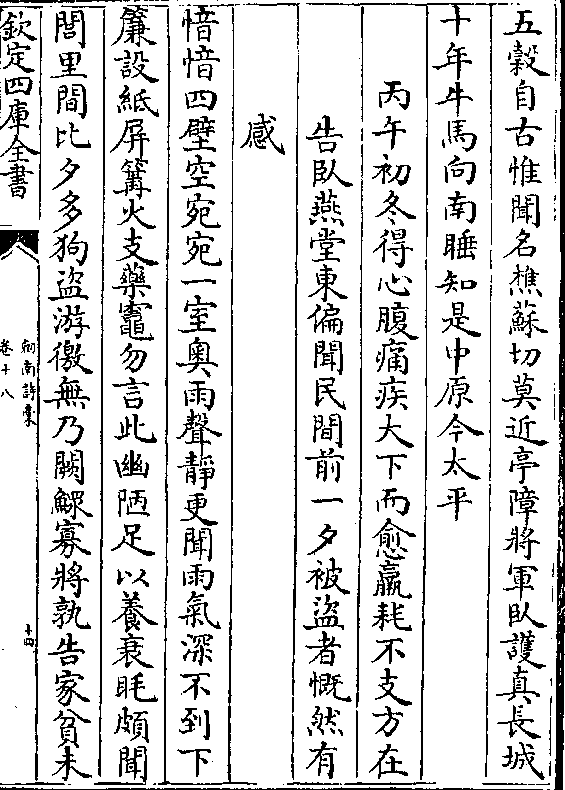 五穀自古惟聞名樵蘇切莫近亭障將軍臥護真長城
十年牛馬向南睡知是中原今太平
丙午初冬得心腹痛疾大下而愈羸耗不支方在
告臥燕堂東偏聞民間前一夕被盜者慨然有
感
愔愔四壁空宛宛一室奥雨聲靜更聞雨氣深不到下
簾設紙屏篝火支藥竈勿言此幽陋足以養衰眊頗聞
閭里間比夕多狗盜游徼無乃闕鰥寡將孰告家貧未
欽定四庫全書
劍南詩藁
卷十八
十四